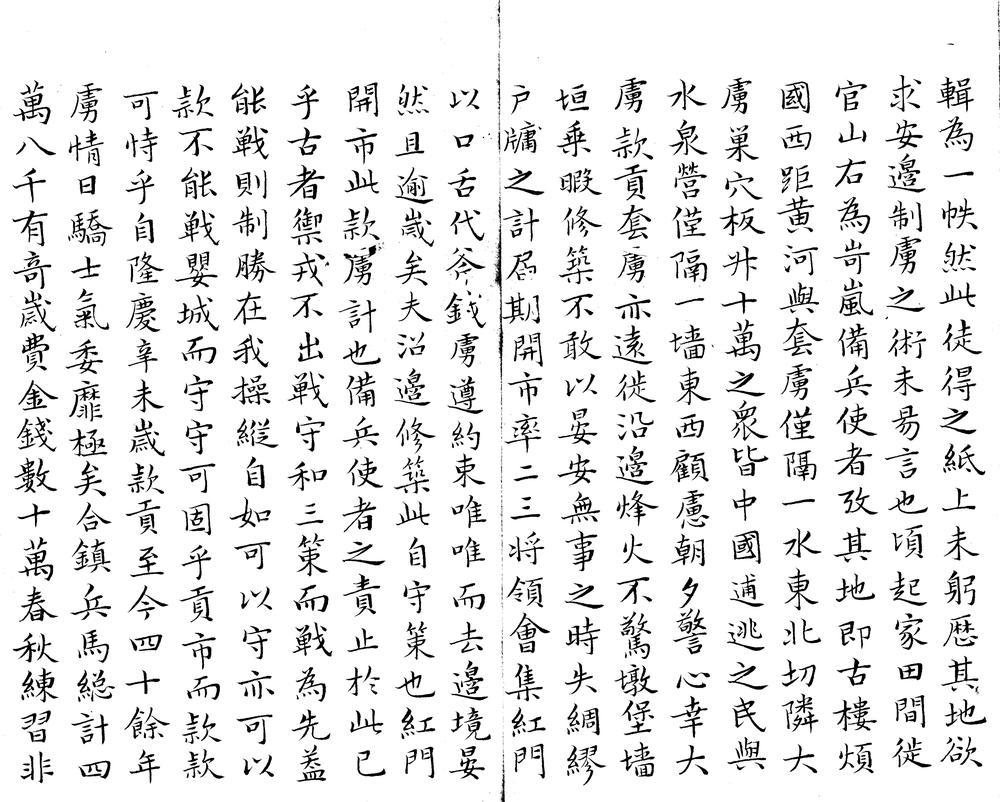 輯為一帙然此徒得之紙上未躬歷其地欲
求安邊制虜之術未易言也頃起家田間徙
官山右為岢嵐備兵使者攷其地即古樓煩
國西距黃河與套虜僅隔一水東北切隣大
虜巢穴板升十萬之衆皆中國逋逃之民與
水泉營僅隔一墻東西顧慮朝夕警心幸大
虜款貢套虜亦遠徙沿邊烽火不驚墩堡墻
垣乗暇修築不敢以晏安無事之時失綢繆
戶牖之計屆期開市率二三將領會集紅門
以口舌代斧鉞虜遵約束唯唯而去邊境晏
然且逾歲矣夫沿邊修築此自守策也紅門
開市此款虜計也備兵使者之責止於此已
乎古者禦戎不出戰守和三策而戰為先蓋
能戰則制勝在我操縱自如可以守亦可以
款不能戰嬰城而守守可固乎貢市而款款
可恃乎自隆慶辛未歲款貢至今四十餘年
虜情日驕士氣委靡極矣合鎮兵馬總計四
萬八千有奇歲費金錢數十萬春秋練習非